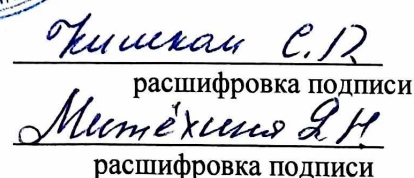 С.П.
расшифровка подписи
Митёхина Я.Н.
расшифровка подписи